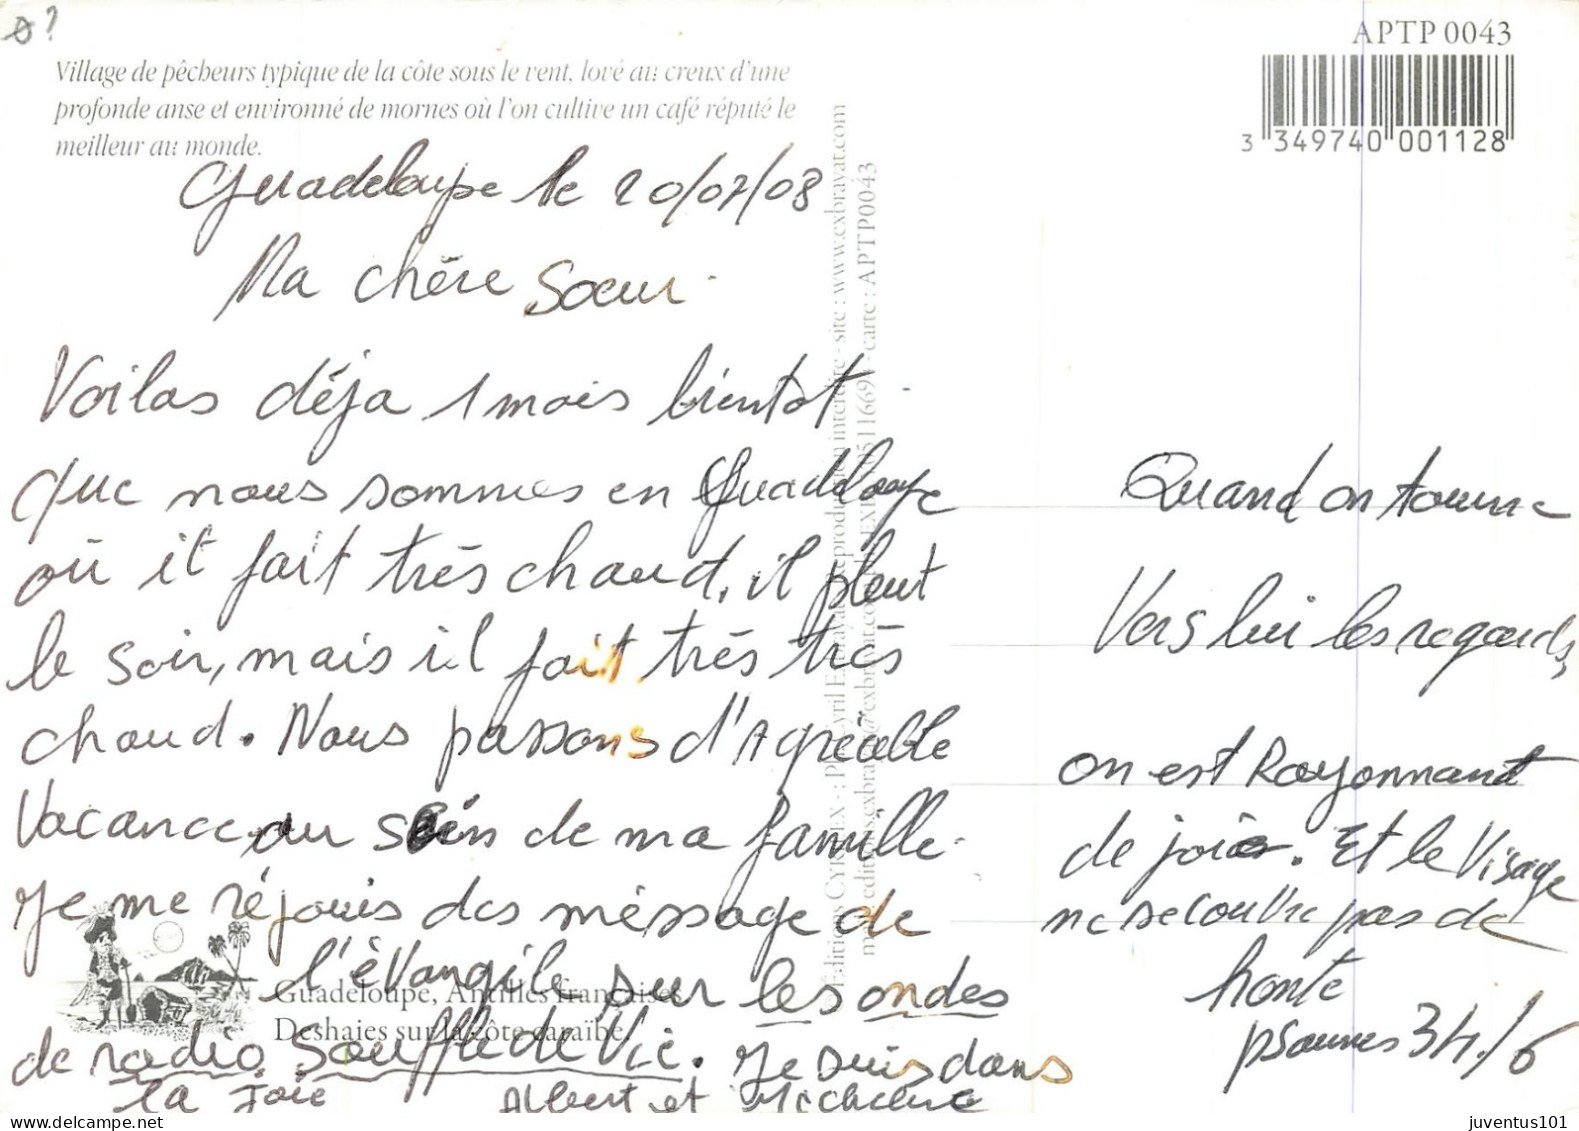 APTP 0043
3 349740 001128
Village de pêcheurs typique de la côte sous le vent, lové au creux d'une
profonde anse et environné de mornes où l'on cultive un café réputé le
meilleur au monde.
Guadeloupe le 20/07/08
Ma chère Soeur
Voilas déja 1 mois bientot
que nous sommes en Guadeloupe
où il fait très chaud, il pleut
le soir, mais il fait très très
chaud. Nous passons d'Agréable
Vacance au sein de ma famille.
Je me réjouis des méssage de
l'èvangile sur les ondes
de radio Souffle de Vie. Je suis dans
la Joie Albert et Micheline
Guadeloupe, Antilles françaises
Deshaies sur la côte caraïbe.
site : www.exbrayat.com
carte : APTP0043
Quand on tourne
Vers lui les regards,
on est Rayonnant
de joie. Et le Visage
ne se couvre pas de
honte
psaumes 34/6
juventus101